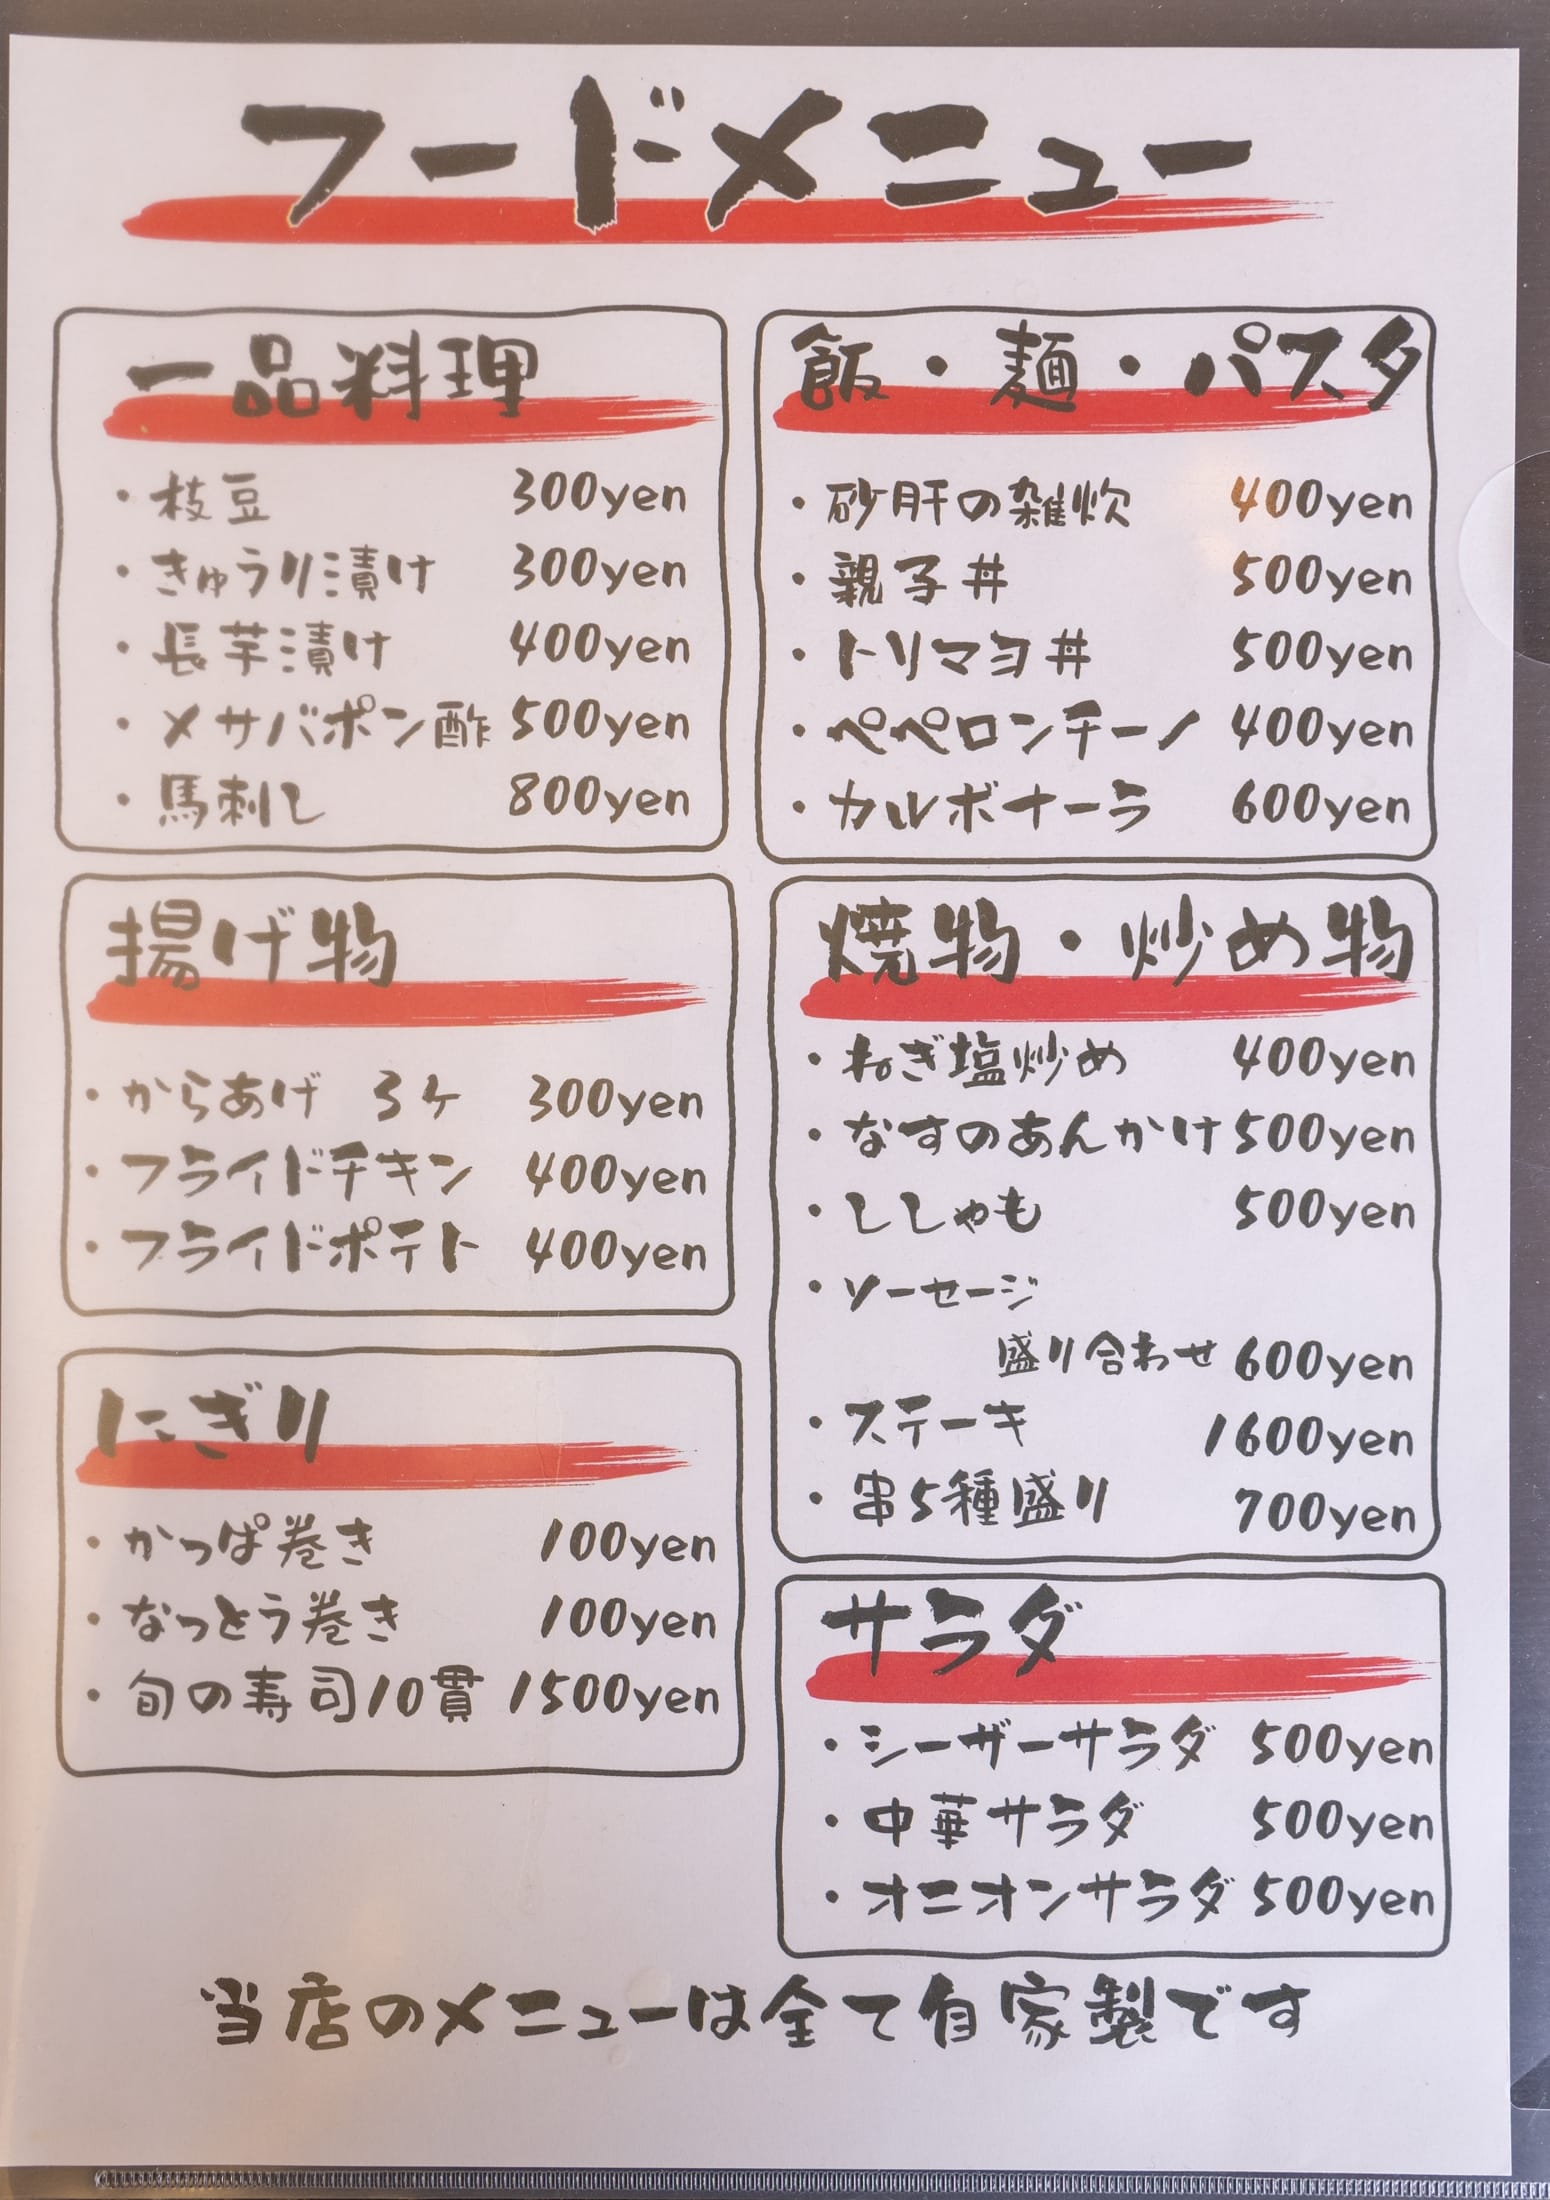 フードメニュー
一品料理
・枝豆 300yen
・きゅうり漬け 300yen
・長芋漬け 400yen
・メサバポン酢 500yen
・馬刺し 800yen
揚げ物
・からあげ 3ケ 300yen
・フライドチキン 400yen
・フライドポテト 400yen
にぎり
・かっぱ巻き 100yen
・なっとう巻き 100yen
・旬の寿司10貫 1500yen
飯・麺・パスタ
・砂肝の雑炊 400yen
・親子丼 500yen
・トリマヨ丼 500yen
・ペペロンチーノ 400yen
・カルボナーラ 600yen
焼物・炒め物
・ねぎ塩炒め 400yen
・なすのあんかけ 500yen
・ししゃも 500yen
・ソーセージ
盛り合わせ 600yen
・ステーキ 1600yen
・串5種盛り 700yen
サラダ
・シーザーサラダ 500yen
・中華サラダ 500yen
・オニオンサラダ 500yen
当店のメニューは全て自家製です